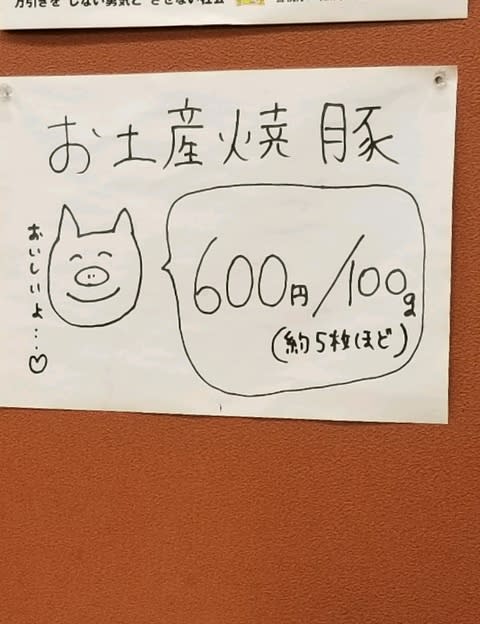 万引きを しない勇気と させない社会
お土産焼豚
おいしいよ…♡
600円/100g
(約5枚ほど)